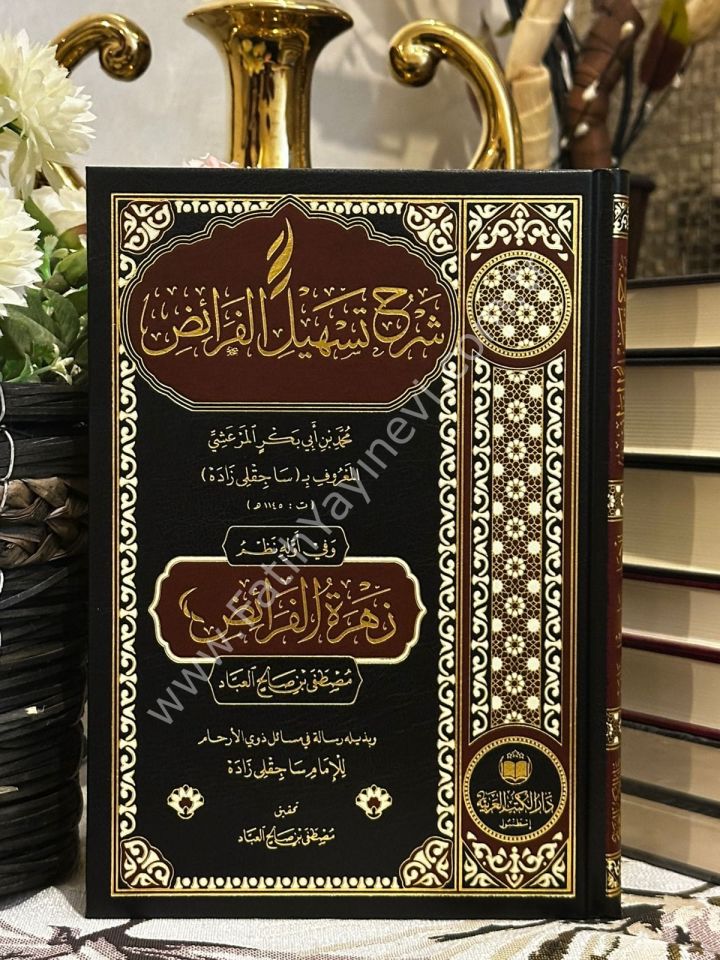 شرح تسهيل الفرائض
محمد بن أبي بكر المرعشي
المعروف بـ (ساجقلي زاده)
(ت : ١١٤٥ هـ)
وفي أوله نظم
زهرة الفرائض
مصطفى بن صالح العباد
وبذيله رسالة في مسائل ذوي الأرحام
للإمام ساجقلي زاده
تحقيق
مصطفى بن صالح العباد
دار الكتب العربية
إسطنبول
www.FatihYayinevi.com